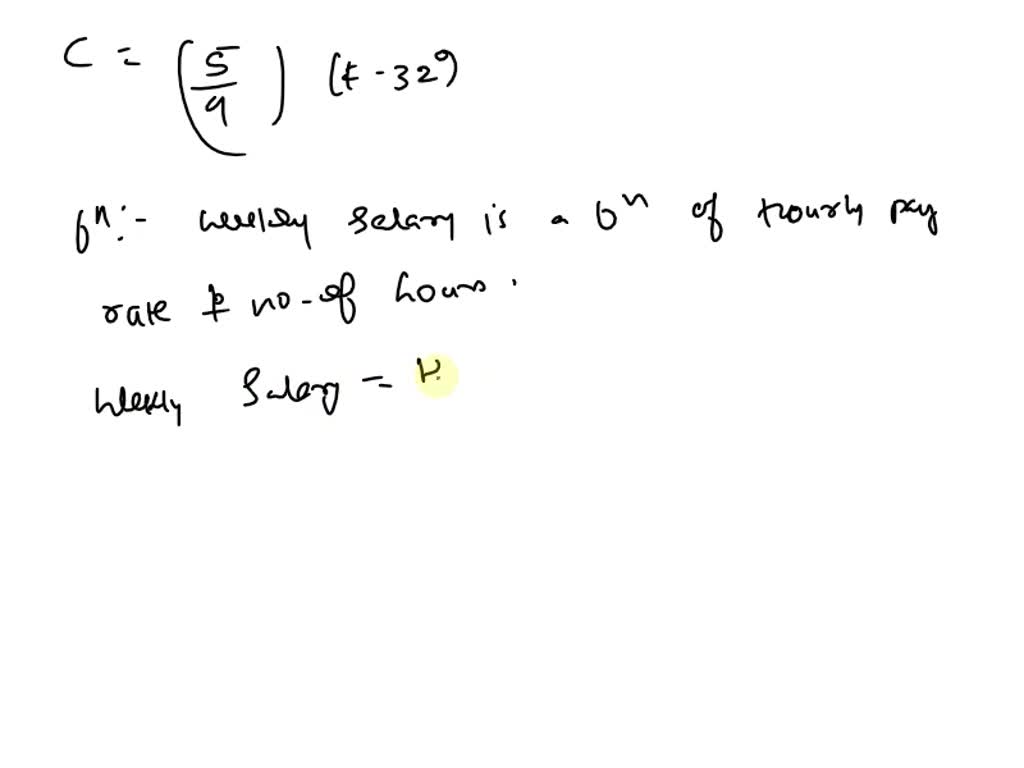 C = (5/9) (F - 32°)
fⁿ:- weekly salary is a fⁿ of hourly pay
rate & no-of hours.
Weekly Salary = H